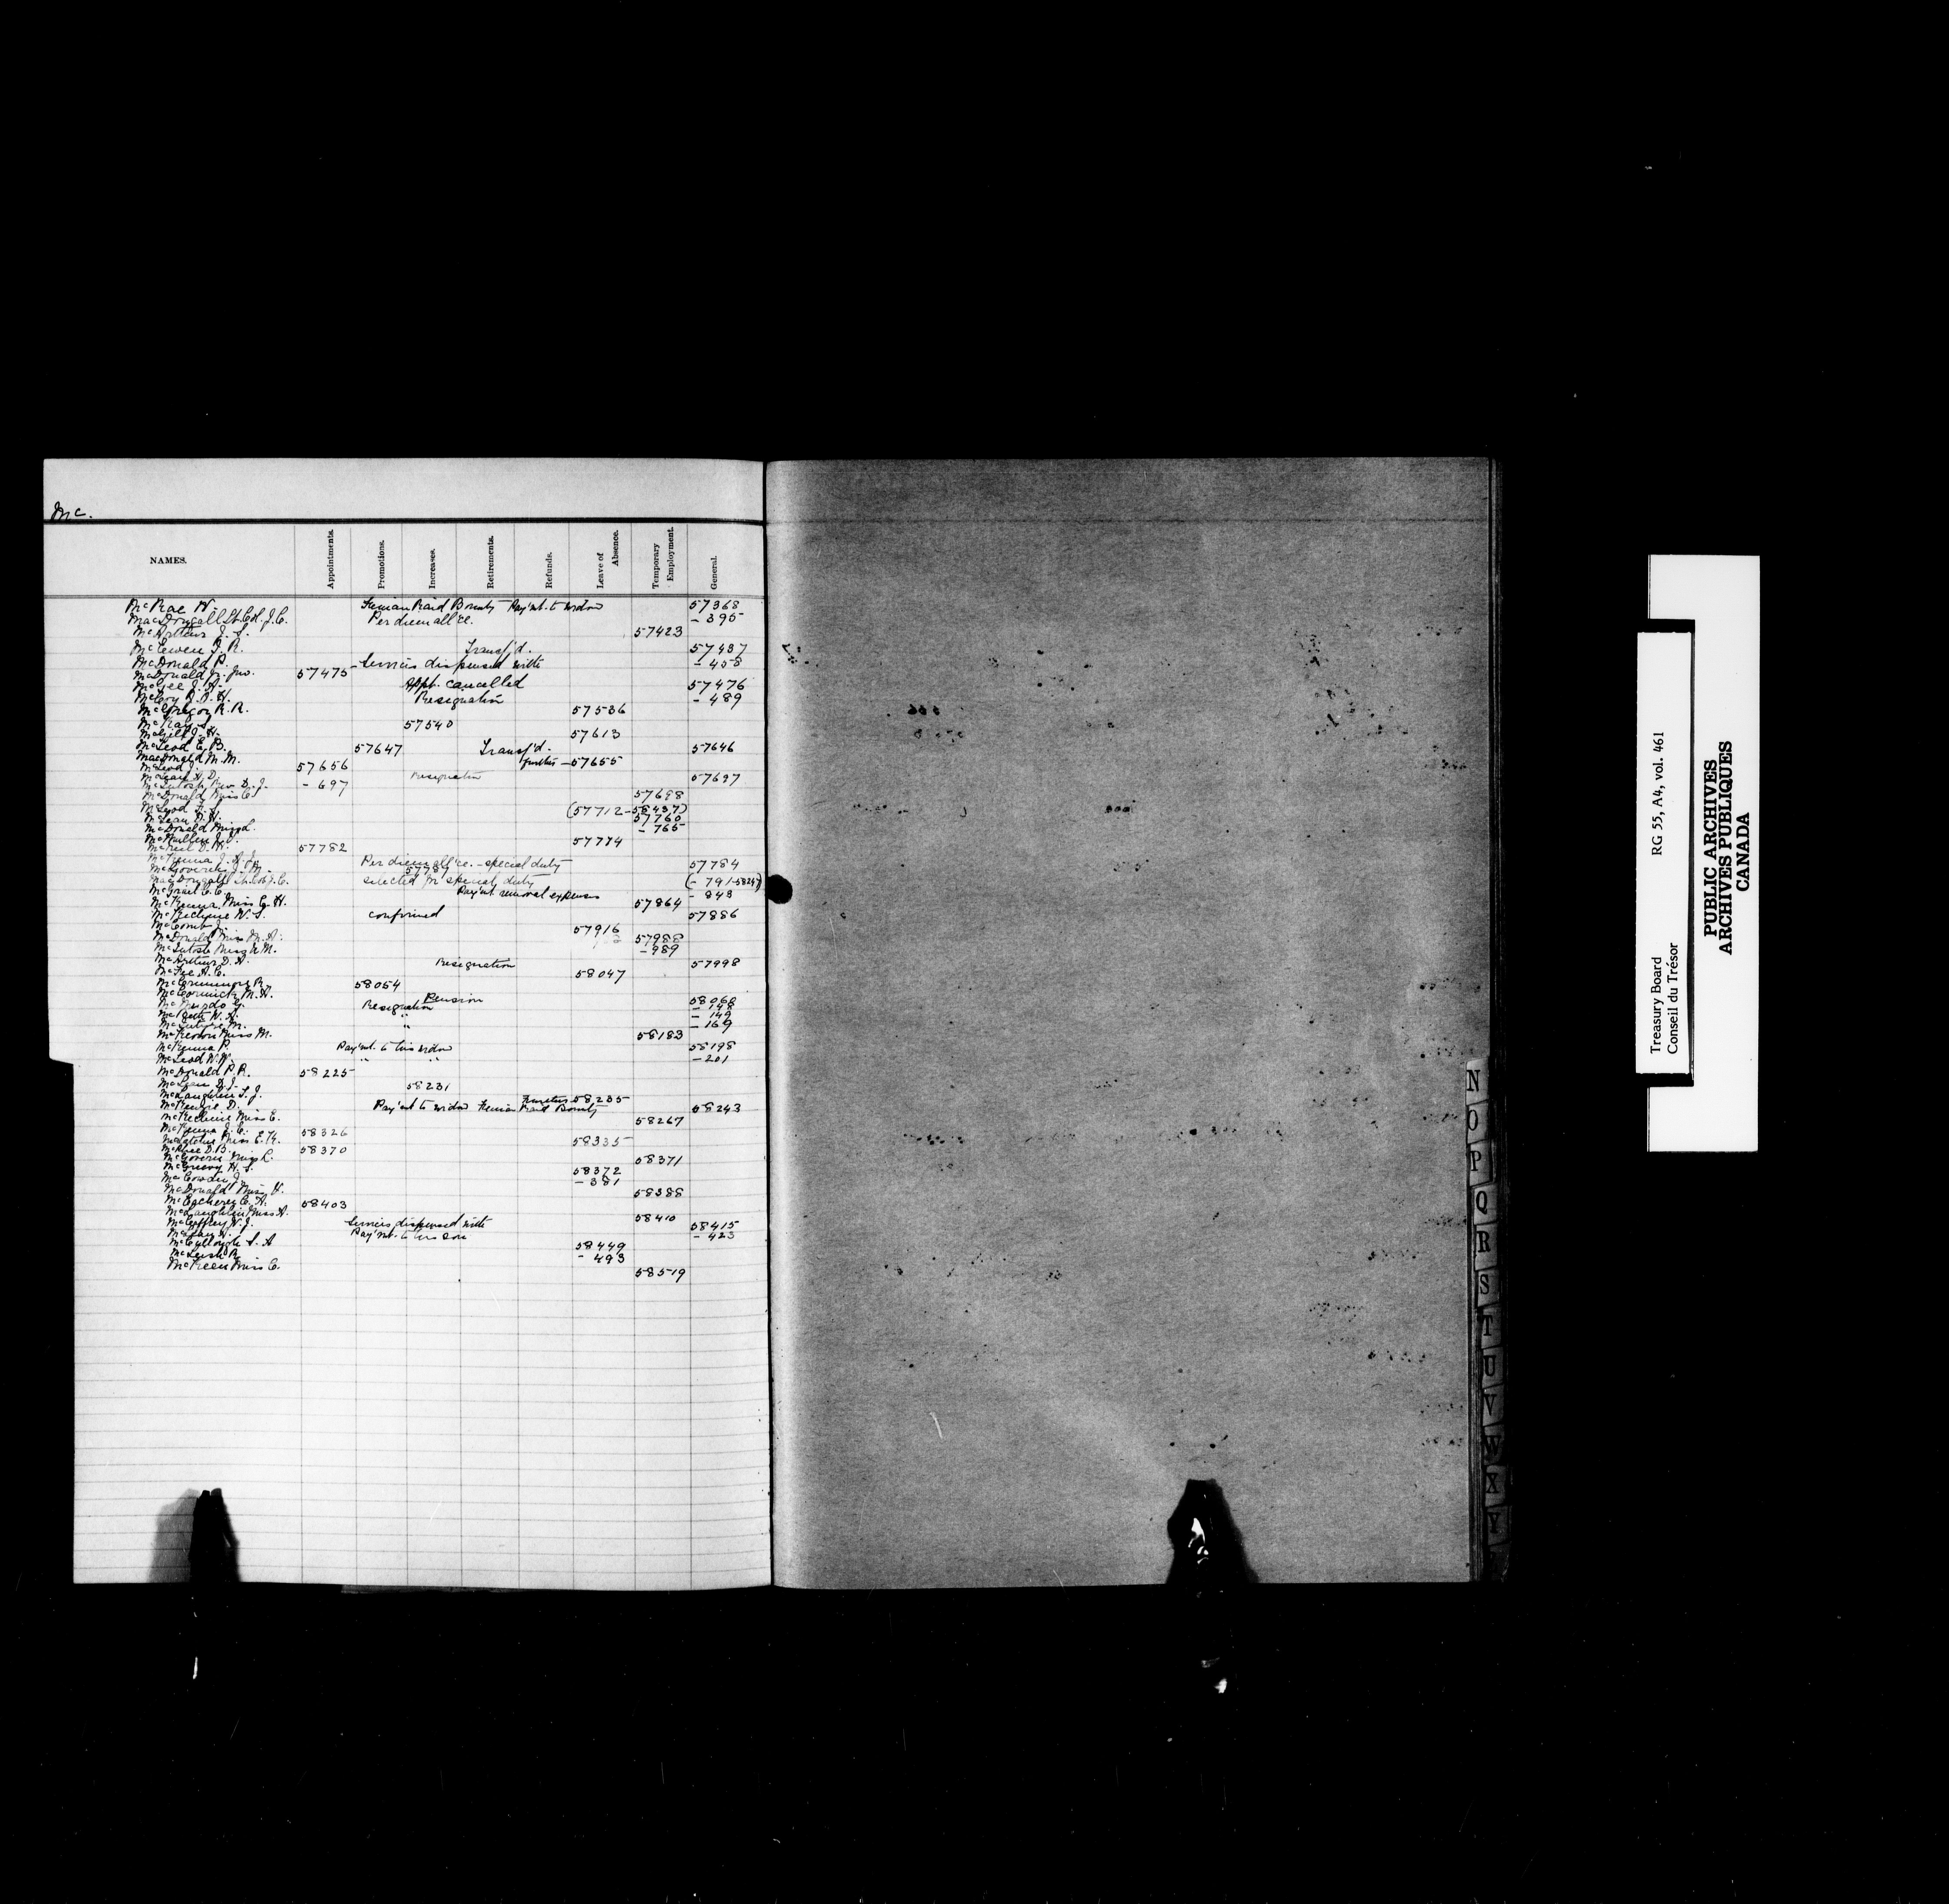 Mc.
NAMES. Appointments. Promotions. Increases. Retirements. Refunds. Leave of Absence. Temporary Employment. General.
McRae W. Fenian Raid Bounty Pay'mt. to widow 57368
MacDougall Lt. Col. J. C. Per diem all'ce. - 395
McArthur J. S. 57423
McEwen J. R. Transf'd. 57437
McDonald P. Services dispensed with - 458
McDonald Jno. 57475
McGee J. A. Appt. cancelled 57476
McCoy R. B. H. Resignation - 489
McGregor R. R. 57536
McKay J. 57540
McGill J. H. 57613
McLeod E. B. 57647 Transf'd. 57646
MacDonald M. M. further - 57655
McLeod J. 57656
McLean H. D. Resignation 57697
McIntosh Rev. D. J. - 697
McDonald Miss C. 57698
McLeod (57712 - 58437)
McLean H. 57760
McDonald Miss L. - 765
McMullen J. D. 57774
McNeil D. K. 57782
McKenna J. A. J. Per diem all'ce. - special duty 57784
McGoverin J. M. 57787
MacDougall Lt. Col. J. C. selected for special duty (- 791-58247)
McGrail C. C. Pay'mt. removal expenses - 843
Miss C. H. 57864
McKechnie W. S. confirmed 57886
McComb J. 57916
McDonald Miss M. A. 57988
McIntosh Miss W. M. - 989
McArthur D. A. Resignation 57998
McFee A. C. 58047
McCrimmon R. 58054
McCormick M. H. Pension 58060
McMurdo G. Resignation - 148
W. A. " - 149
McIntyre M. " - 169
McKeown Miss M. 58183
McKenna P. Pay'mt. to his widow 58198
McLeod W. W. " " - 201
McDonald P. R. 58225
McLean D. J. 58231
McLaughlin S. J. further 58235
McKenzie D. Pay'mt to widow Fenian Raid Bounty 58243
McKechnie Miss E. 58267
McKenna J. C. 58326
Miss E. K. 58335
McRae D. B. 58370
McGovern Miss L. 58371
McGreevy H. S. 58372
McCowden J. - 381
McDonald Miss V. 58388
McEachern C. A. 58403
McLaughlin Miss A. 58410
McCaffrey W. J. Services dispensed with 58415
Pay'mt. to his son - 423
McCullough S. A 58449
McLeish R. - 493
McKeen Miss C. 58519
N
O
P
Q
R
S
T
U
V
W
X
Y
Treasury Board RG 55, A4, vol. 461
Conseil du Trésor
PUBLIC ARCHIVES
ARCHIVES PUBLIQUES
CANADA